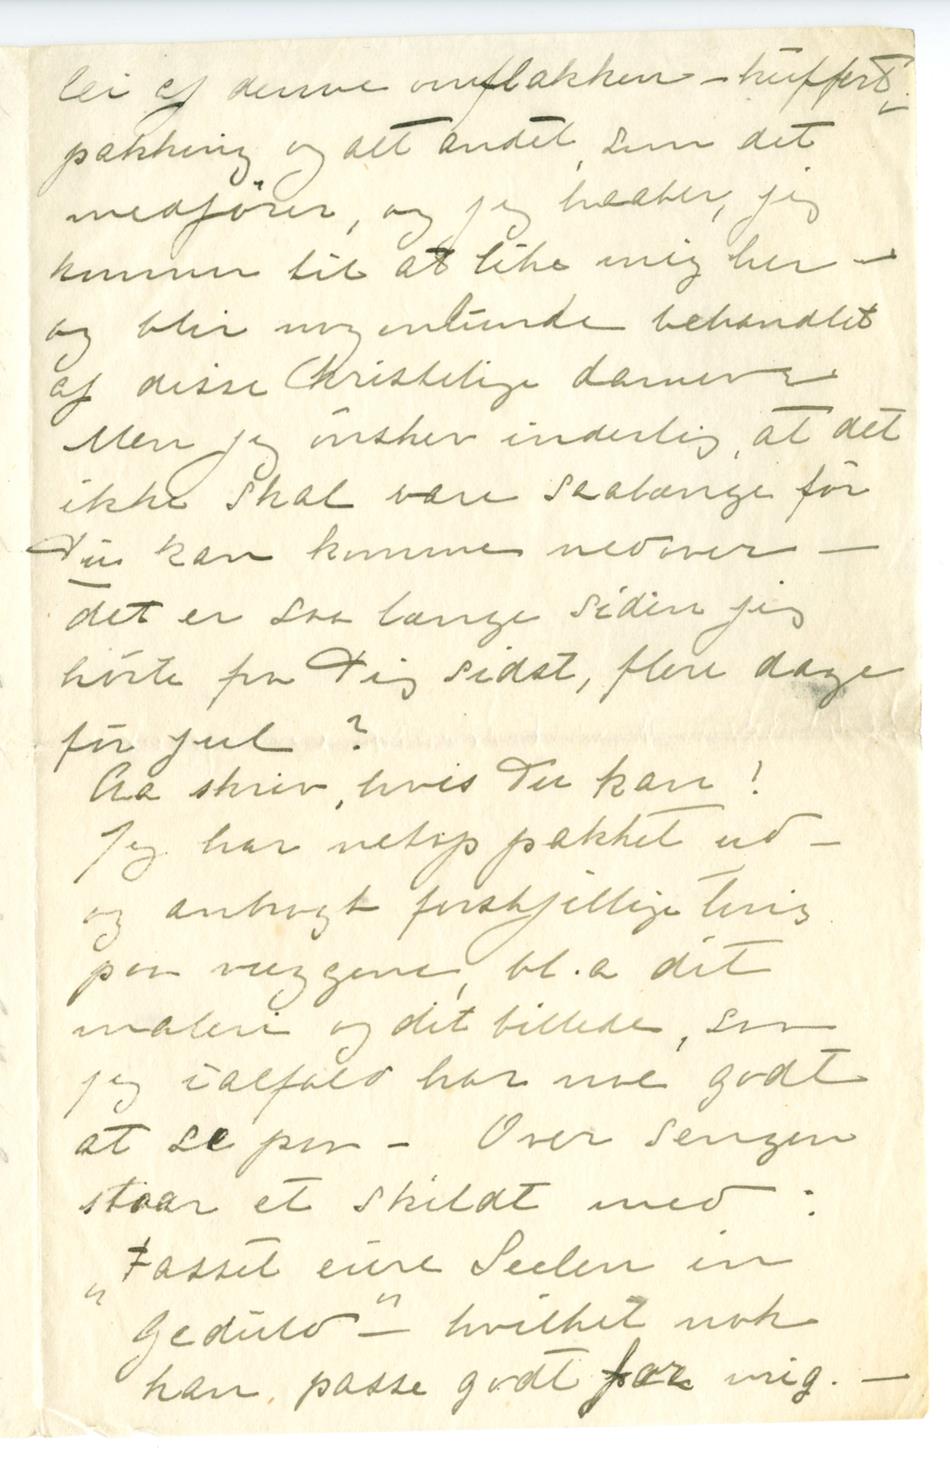 lei af denne omflakken – kuffert-
pakking og alt andet, som det
medfører, og jeg haaber, jeg
kommer til at like mig her –
og blir nogenlunde behandlet
af disse Christelige damer
Men jeg ønsker inderlig, at det
ikke skal være saalænge før
Du kan komme nedover –
det er saa længe siden jeg
hørte fra Dig sidst, flere dage
før jul ?
Aa skriv, hvis Du kan !
Jeg har netop pakket ud –
og anbragt forskjellige ting
paa væggene, bl.a dit
maleri og dit billede, som
jeg ialfald har noe godt
at se paa – Over sengen
staar et skildt med :
„Fasset eure Seelen in
Geduld" – hvilket nok
kan passe godt for mig. –